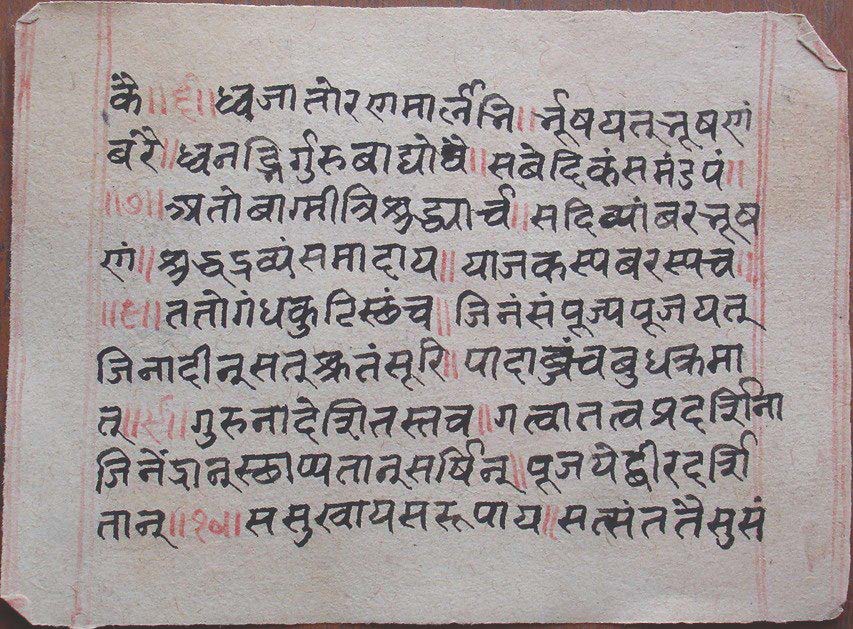 कै॥६॥ध्वजातोरणमार्लनि॥र्भूषयत्भूषणं
बरै॥ध्वनद्भिर्गुरुबाद्योघै॥सबेदिकंसमंडपं॥
॥७॥अतोबाग्मीत्रिशुद्ध्यार्च॥सदिव्यांबरभूष
णं॥शुद्धद्रव्यंसमादाय॥याजकस्यबरस्यच॥
॥८॥ततोगंधकुटिस्छंच॥जिनंसंपूज्यपूजयत्
जिनादीन्सत्श्रुतंसूरि॥पादाब्जंचबुधक्रमा
त्॥९॥गुरुनादेशितस्तव॥गत्वातत्वप्रदर्शिना
जिनेंद्रान्स्छाप्यतान्सर्षिन्॥पूजयेद्धीरदर्शि
तान्॥१०॥ससुखायसरूपाय॥सत्संततैसुसं